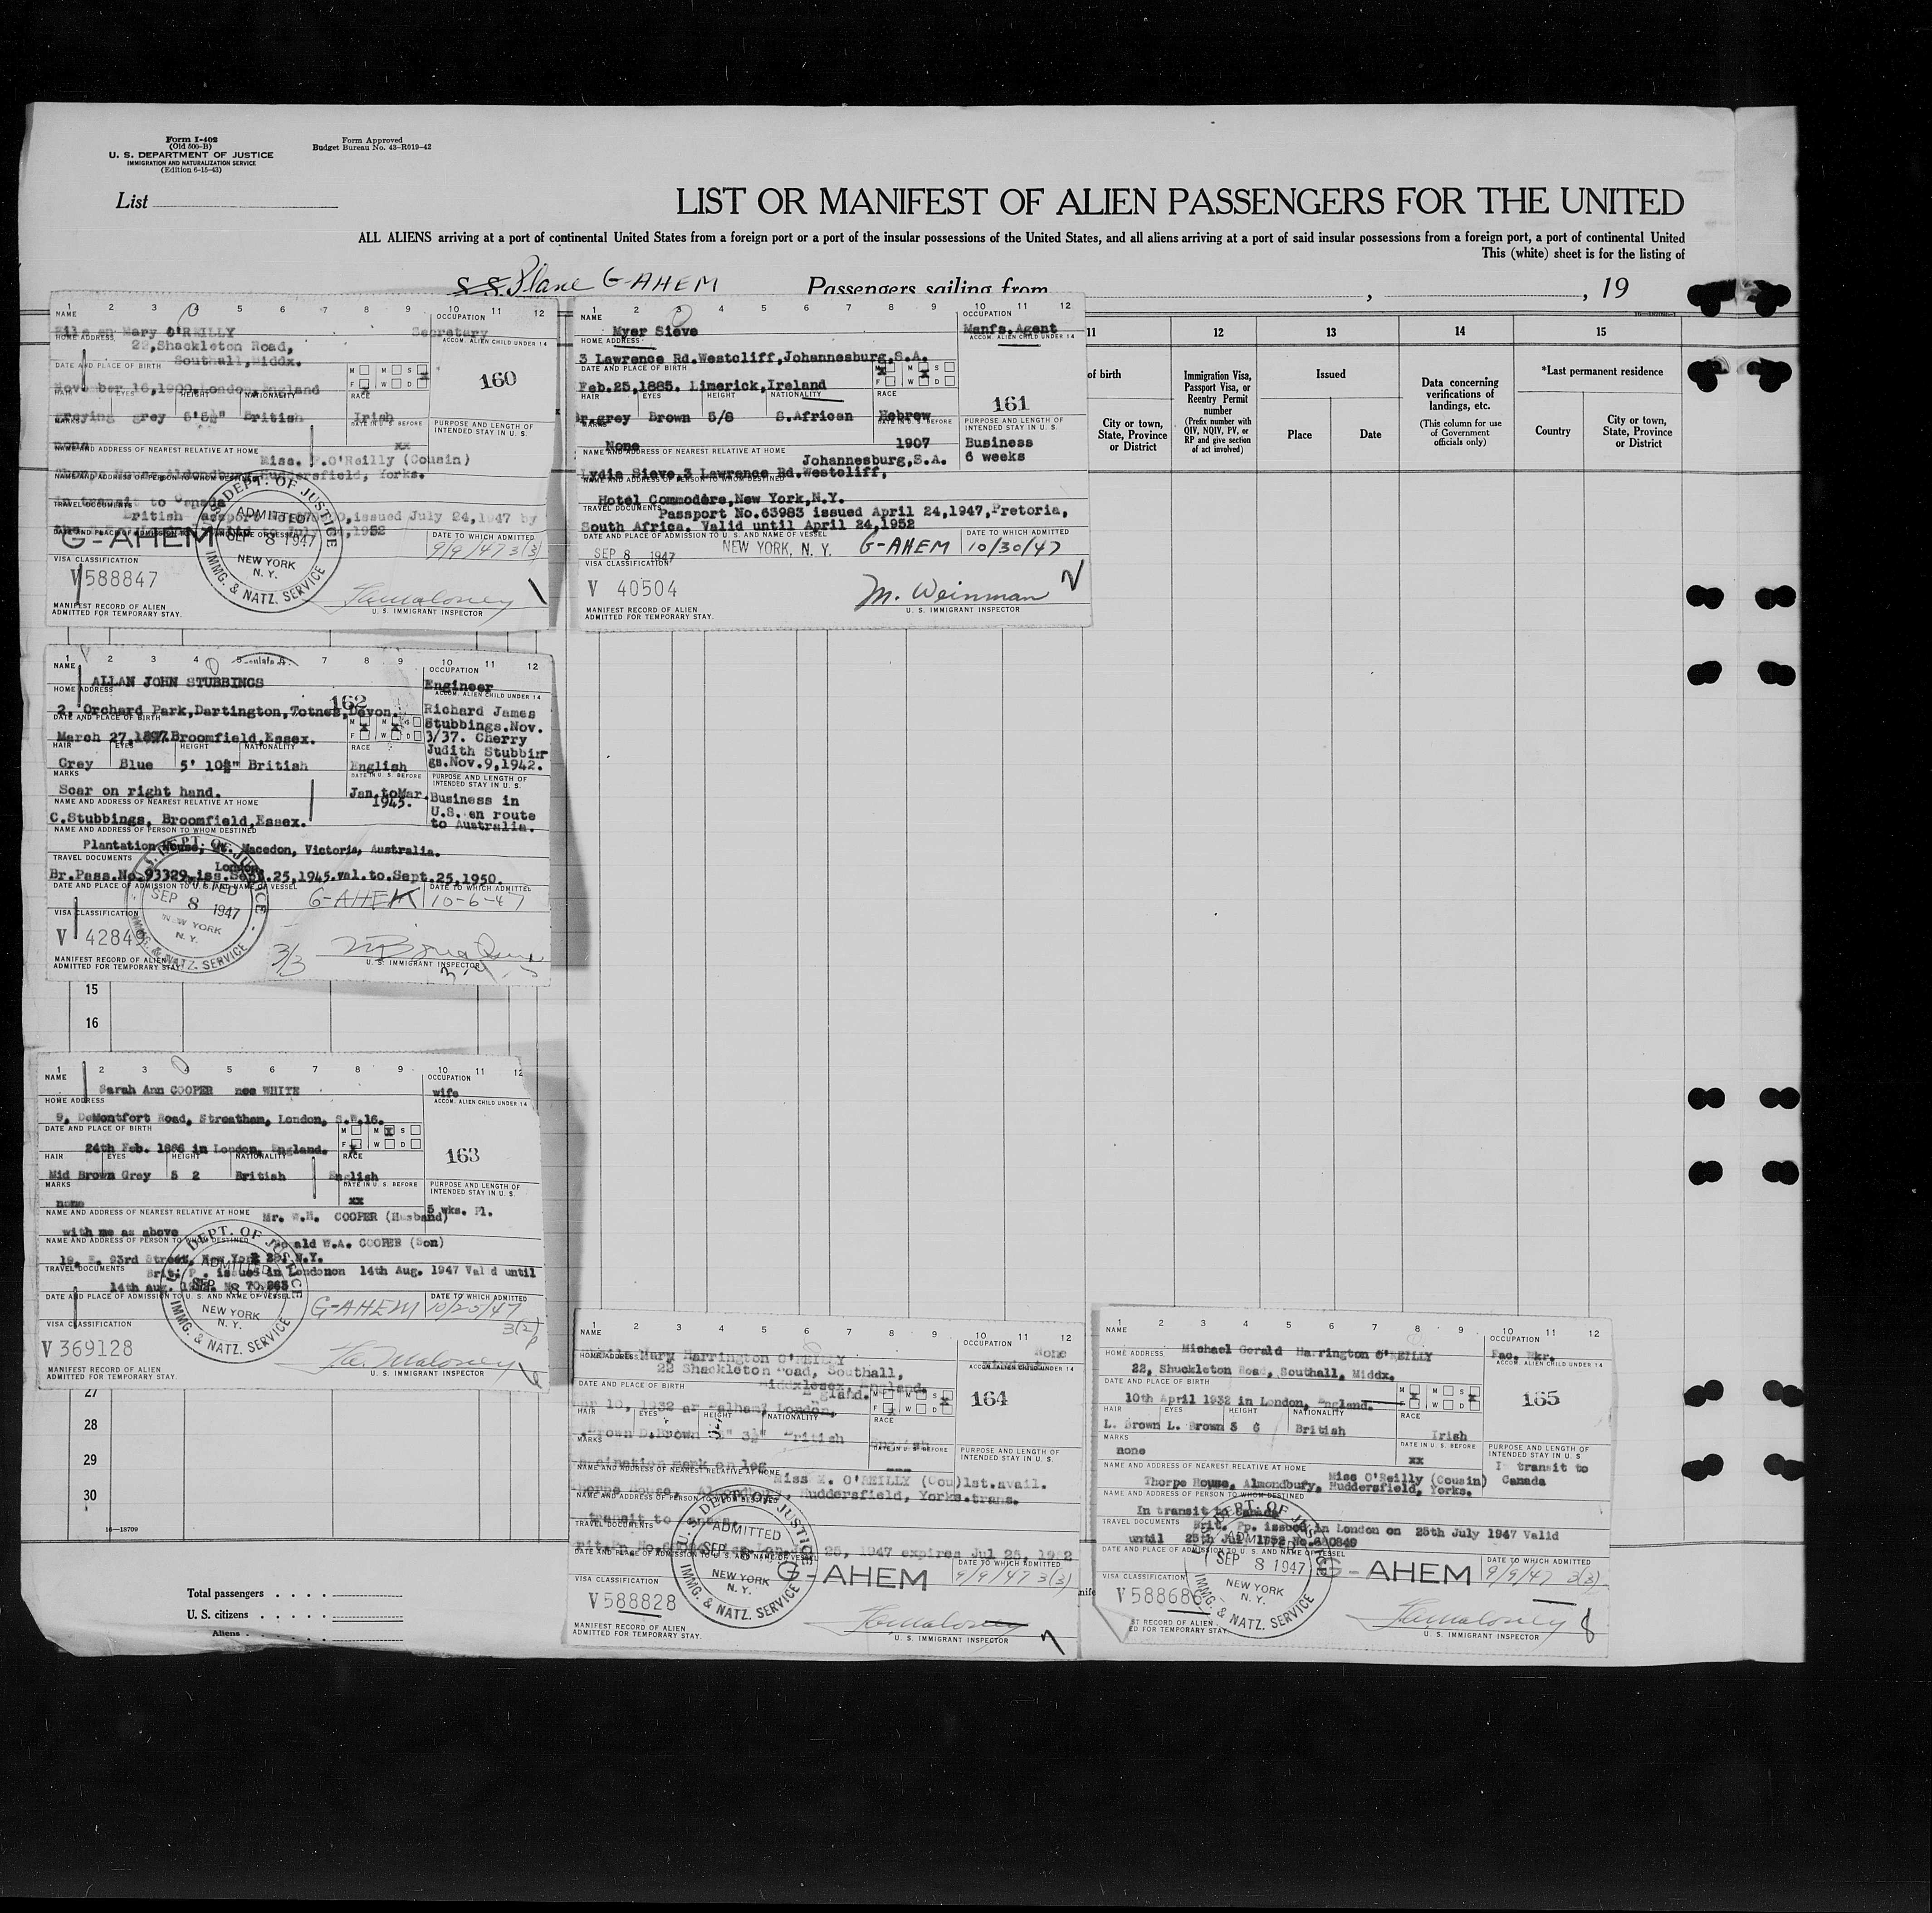 Form I-402
(Old 500-B)
U. S. DEPARTMENT OF JUSTICE
IMMIGRATION AND NATURALIZATION SERVICE
(Edition 6-15-43)
Form Approved
Budget Bureau No. 43-R019-42
List
LIST OR MANIFEST OF ALIEN PASSENGERS FOR THE UNITED
ALL ALIENS arriving at a port of continental United States from a foreign port or a port of the insular possessions of the United States, and all aliens arriving at a port of said insular possessions from a foreign port, a port of continental United
This (white) sheet is for the listing of
S. S. Plane G-AHEM Passengers sailing from , , 19
11 12 13 14 15
of birth
City or town, State, Province or District
Immigration Visa, Passport Visa, or Reentry Permit number
(Prefix number with QIV, NQIV, PV, or RP and give section of act involved)
Issued
Place Date
Data concerning verifications of landings, etc.
(This column for use of Government officials only)
*Last permanent residence
Country
City or town, State, Province or District
1 2 3 4 5 6 7 8 9 10 11 12
NAME OCCUPATION
Eileen Mary O'REILLY Secretary
HOME ADDRESS ACCOM. ALIEN CHILD UNDER 14
22, Shackleton Road,
Southall, Middx.
DATE AND PLACE OF BIRTH M M S x
F x W D
160
November 16,1900, London, England
HAIR EYES HEIGHT NATIONALITY RACE
Greying grey 5'5½" British Irish
MARKS DATE IN U. S. BEFORE PURPOSE AND LENGTH OF INTENDED STAY IN U. S.
none xx
NAME AND ADDRESS OF NEAREST RELATIVE AT HOME
Miss. O'Reilly (Cousin)
Thorpe House, Huddersfield, Yorks.
NAME AND ADDRESS OF PERSON TO WHOM DESTINED
In transit to Canada
TRAVEL DOCUMENTS
British Passport issued July 24, 1947 by
1952
DATE AND PLACE OF ADMISSION TO U. S. AND NAME OF VESSEL DATE TO WHICH ADMITTED
G-AHEM 9/9/47 3(3)
U.S. DEPT. OF JUSTICE
ADMITTED
SEP 8 1947
NEW YORK
N. Y.
IMMG. & NATZ. SERVICE
VISA CLASSIFICATION
V 588847
MANIFEST RECORD OF ALIEN
ADMITTED FOR TEMPORARY STAY.
U. S. IMMIGRANT INSPECTOR
1 2 3 4 5 6 7 8 9 10 11 12
NAME OCCUPATION
Myer Sieve Manfs. Agent
HOME ADDRESS ACCOM. ALIEN CHILD UNDER 14
3 Lawrence Rd. Westcliff, Johannesburg, S.A.
DATE AND PLACE OF BIRTH M x M x S
F W D
Feb.25,1885. Limerick, Ireland
HAIR EYES HEIGHT NATIONALITY RACE
161
Br.grey Brown 5/8 S.African Hebrew
MARKS DATE IN U. S. BEFORE PURPOSE AND LENGTH OF INTENDED STAY IN U. S.
None 1907 Business
6 weeks
NAME AND ADDRESS OF NEAREST RELATIVE AT HOME
Johannesburg, S.A.
Lydia Sieve, 3 Lawrence Rd. Westcliff,
NAME AND ADDRESS OF PERSON TO WHOM DESTINED
Hotel Commodore, New York, N.Y.
TRAVEL DOCUMENTS Passport No.63983 issued April 24, 1947, Pretoria,
South Africa. Valid until April 24, 1952
DATE AND PLACE OF ADMISSION TO U. S. AND NAME OF VESSEL DATE TO WHICH ADMITTED
SEP 8 1947 NEW YORK, N. Y. G-AHEM 10/30/47
VISA CLASSIFICATION
V 40504
M. Weinman
MANIFEST RECORD OF ALIEN
ADMITTED FOR TEMPORARY STAY.
U. S. IMMIGRANT INSPECTOR
1 2 3 4 5 7 8 9 10 11 12
NAME OCCUPATION
ALLAN JOHN STUBBINGS Engineer
HOME ADDRESS ACCOM. ALIEN CHILD UNDER 14
162
2, Orchard Park, Dartington, Totnes, Devon.
Richard James
Stubbings. Nov.
3/37. Cherry
Judith Stubbin
gs. Nov.9,1942.
DATE AND PLACE OF BIRTH M x M x S
F W D
March 27,1897. Broomfield, Essex.
HAIR EYES HEIGHT NATIONALITY RACE
Grey Blue 5' 10¾" British English
MARKS DATE IN U. S. BEFORE PURPOSE AND LENGTH OF INTENDED STAY IN U. S.
Scar on right hand. Jan. to Mar. 1945.
Business in
U.S. en route
to Australia.
NAME AND ADDRESS OF NEAREST RELATIVE AT HOME
C.Stubbings, Broomfield, Essex.
NAME AND ADDRESS OF PERSON TO WHOM DESTINED
Plantation House, Mt. Macedon, Victoria, Australia.
TRAVEL DOCUMENTS
London
Br.Pass.No.93329.iss.Sept.25,1945.val.to.Sept.25,1950.
DATE AND PLACE OF ADMISSION TO U. S. AND NAME OF VESSEL DATE TO WHICH ADMITTED
G-AHEK 10-6-47
SEP 8 1947
NEW YORK
N. Y.
IMMG. & NATZ. SERVICE
VISA CLASSIFICATION
V 4284
3/3
MANIFEST RECORD OF ALIEN
ADMITTED FOR TEMPORARY STAY.
U. S. IMMIGRANT INSPECTOR
15
16
1 2 3 4 5 6 7 8 9 10 11 12
NAME OCCUPATION
Sarah Ann COOPER nee WHITE wife
HOME ADDRESS ACCOM. ALIEN CHILD UNDER 14
9, DeMontfort Road, Streatham, London, S.W.16.
DATE AND PLACE OF BIRTH M M x S
F x W D
24th Feb. 1886 in London, England.
163
HAIR EYES HEIGHT NATIONALITY RACE
Mid Brown Grey 5 2 British English
MARKS DATE IN U. S. BEFORE PURPOSE AND LENGTH OF INTENDED STAY IN U. S.
none xx
5 wks. Pl.
NAME AND ADDRESS OF NEAREST RELATIVE AT HOME Mr. W.H. COOPER (Husband)
with me as above
NAME AND ADDRESS OF PERSON TO WHOM DESTINED W.A. COOPER (Son)
19, E. 93rd Street, New York 28, N.Y.
TRAVEL DOCUMENTS Brit. P. issued in London on 14th Aug. 1947 Valid until
14th aug.
DATE AND PLACE OF ADMISSION TO U. S. AND NAME OF VESSEL DATE TO WHICH ADMITTED
G-AHEM 10/25/47
DEPT. OF JUSTICE
ADMITTED
SEP 8
NEW YORK
N. Y.
IMMG. & NATZ. SERVICE
VISA CLASSIFICATION
V 369128
MANIFEST RECORD OF ALIEN
ADMITTED FOR TEMPORARY STAY.
U. S. IMMIGRANT INSPECTOR
27
28
29
30
16—18709
Total passengers
U. S. citizens
Aliens
1 2 3 4 5 6 7 8 9 10 11 12
NAME OCCUPATION
Mary Harrington O'REILLY None
HOME ADDRESS ACCOM. ALIEN CHILD UNDER 14
22 Shackleton Road, Southall,
Middlesex, England.
DATE AND PLACE OF BIRTH M M S x
F x W D
164
10, 1932 London,
HAIR EYES HEIGHT NATIONALITY RACE
Brown D.Brown British
MARKS DATE IN U. S. BEFORE PURPOSE AND LENGTH OF INTENDED STAY IN U. S.
Vaccination mark on leg
NAME AND ADDRESS OF NEAREST RELATIVE AT HOME
Miss O'REILLY (Cou) 1st. avail.
Thorpe House, Huddersfield, Yorks. trans.
NAME AND ADDRESS OF PERSON TO WHOM DESTINED
transit to
TRAVEL DOCUMENTS
25, 1947 expires Jul 25, 1952
DATE AND PLACE OF ADMISSION TO U. S. AND NAME OF VESSEL DATE TO WHICH ADMITTED
G-AHEM 9/9/47 3(3)
ADMITTED
SEP 8
NEW YORK
N. Y.
IMMG. & NATZ. SERVICE
VISA CLASSIFICATION
V 588828
MANIFEST RECORD OF ALIEN
ADMITTED FOR TEMPORARY STAY.
U. S. IMMIGRANT INSPECTOR
1 2 3 4 5 6 7 8 9 10 11 12
NAME OCCUPATION
Michael Gerald Harrington O'REILLY Fac. Wkr.
HOME ADDRESS ACCOM. ALIEN CHILD UNDER 14
22, Shuckleton Road, Southall, Middx.
DATE AND PLACE OF BIRTH M x M S x
F W D
165
10th April 1932 in London, England.
HAIR EYES HEIGHT NATIONALITY RACE
L. Brown L. Brown 5 6 British Irish
MARKS DATE IN U. S. BEFORE PURPOSE AND LENGTH OF INTENDED STAY IN U. S.
none xx
I transit to
Canada
NAME AND ADDRESS OF NEAREST RELATIVE AT HOME
Miss O'Reilly (Cousin)
Thorpe House, Almondbury, Huddersfield, Yorks.
NAME AND ADDRESS OF PERSON TO WHOM DESTINED
In transit to Canada
TRAVEL DOCUMENTS Brit. Pp. issued in London on 25th July 1947 Valid
until 25th Jul 1952 No.
DATE AND PLACE OF ADMISSION TO U. S. AND NAME OF VESSEL DATE TO WHICH ADMITTED
G-AHEM 9/9/47 3(3)
SEP 8 1947
NEW YORK
N. Y.
& NATZ. SERVICE
VISA CLASSIFICATION
V 58868
ST RECORD OF ALIEN
ED FOR TEMPORARY STAY.
U. S. IMMIGRANT INSPECTOR